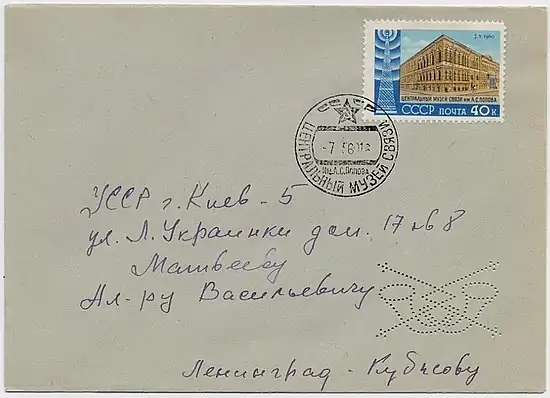 7.V.1960
ЦЕНТРАЛЬНЫЙ МУЗЕЙ СВЯЗИ ИМ. А.С.ПОПОВА
СССР ПОЧТА 40 К
СССР
ЦЕНТРАЛЬНЫЙ МУЗЕЙ СВЯЗИ
ИМ. А.С.ПОПОВА
УССР г. Киев - 5
ул. Л. Украинки дом. 17 кв 8
Матвееву
Ал-ру Васильевичу
Ленинград - Кубасову